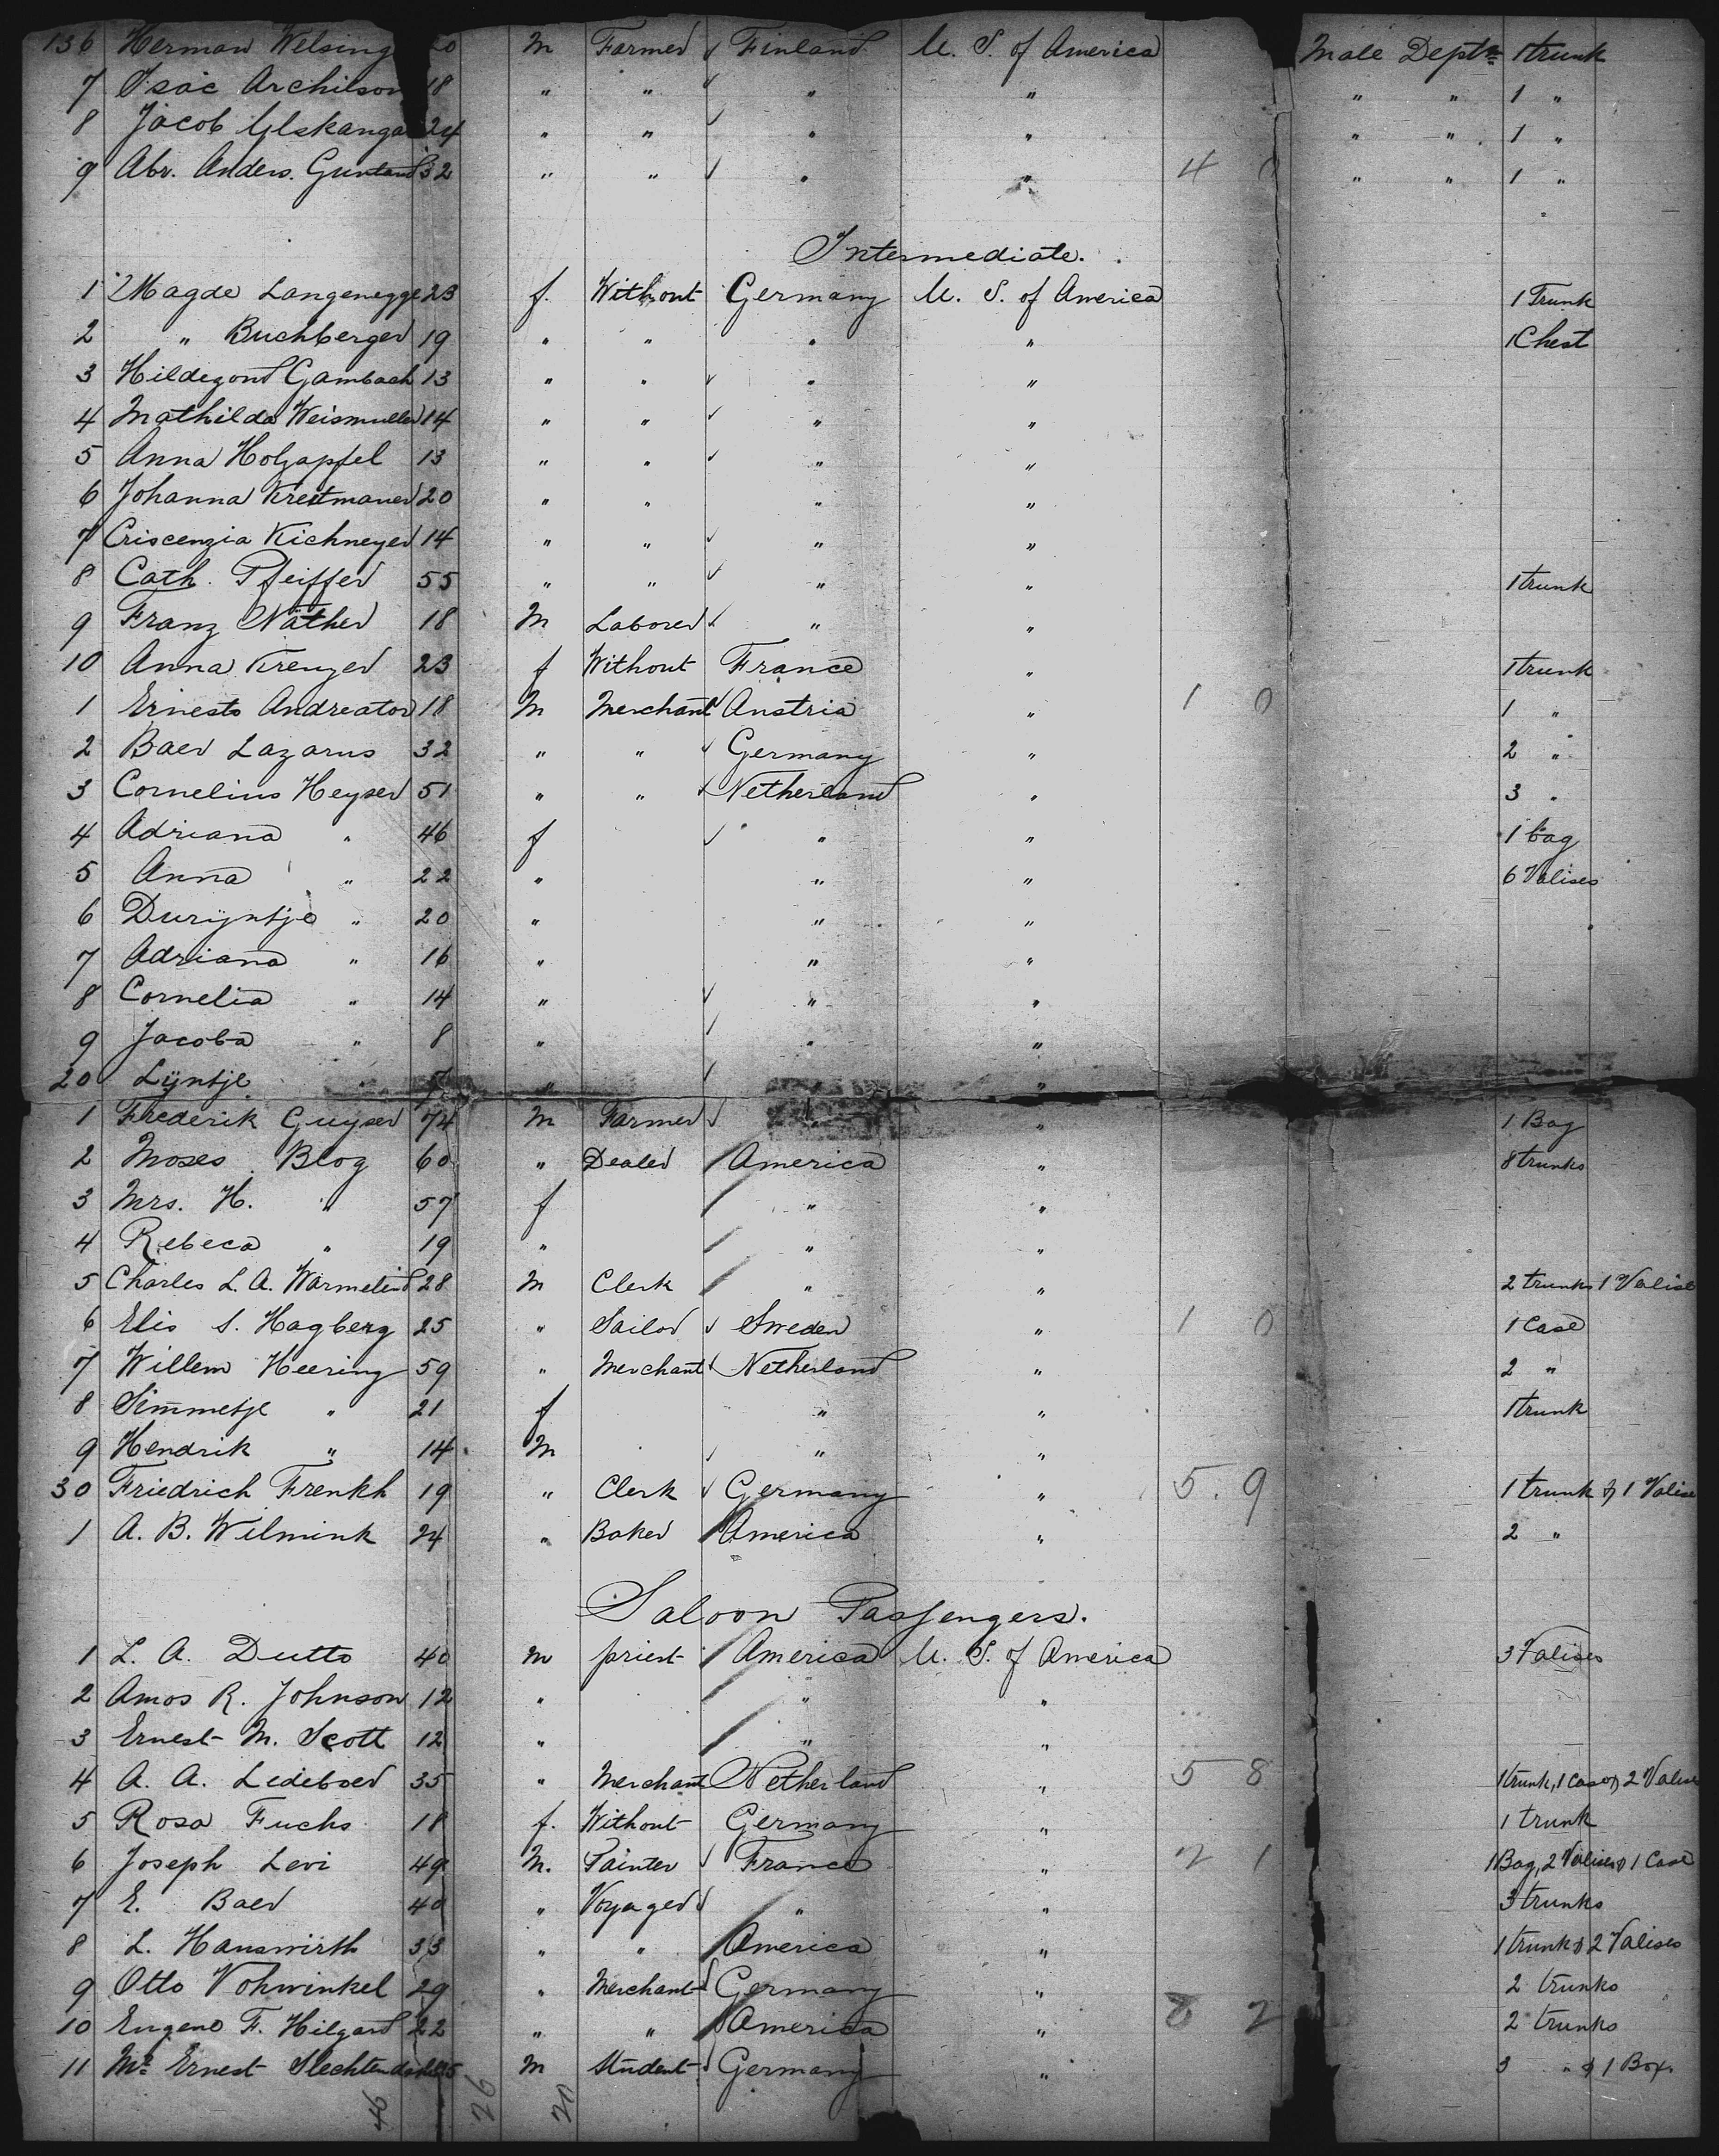 136 Herman Welsing 20 M Farmer Finland U. S. of America Male Deptm 1 trunk
7 Isac Archilson 18 " " " " " " 1 "
8 Jacob Ulskanga 24 " " " " " " 1 "
9 Abr. Anders. 32 " " " " 4 0 " " 1 "
Intermediate.
1 Magde Langenegge 23 f. Without Germany U. S. of America 1 Trunk
2 " Buchberger 19 " " " " 1 Chest
3 Hildegond Gambach 13 " " " "
4 Mathilda Weismuller 14 " " " "
5 Anna Holzapfel 13 " " " "
6 Johanna Kreitmauer 20 " " " "
7 Criscenzia Kichneyer 14 " " " "
8 Cath. Pfeiffer 55 " " " " 1 trunk
9 Franz Näther 18 M Laborer " "
10 Anna Kreuzer 23 f Without France " 1 trunk
1 Ernesto Andreator 18 M Merchant Austria " 1 0 1 "
2 Baer Lazarus 32 " " Germany " 2 "
3 Cornelius Heyser 51 " " Netherland " 3 "
4 Adriana " 46 f " " 1 bag
5 Anna " 22 " " " 6 Valises
6 Durijntje " 20 " " "
7 Adriana " 16 " " "
8 Cornelia " 14 " " "
9 Jacoba " 8 " " "
20 Lijntje " "
1 Frederik Guyser 74 M Farmer " 1 Bag
2 Moses Blog 60 " Dealer America " 8 trunks
3 Mrs. H. " 57 f " "
4 Rebeca " 19 " " "
5 Charles L. A. Warmelind 28 M Clerk " " 2 trunks 1 Valise
6 Elis S. Hagberg 25 " Sailor Sweden " 1 0 1 Case
7 Willem Heering 59 " Merchant Netherland " 2 "
8 Simmetje " 21 f " " 1 trunk
9 Hendrik " 14 M " "
30 Friedrich Frenkh 19 " Clerk Germany " 5. 9 1 trunk & 1 Valise
1 A. B. Wilmink 24 " Baker America " 2 "
Saloon Passengers.
1 L. A. Dutto 40 m priest America U. S. of America 3 Valises
2 Amos R. Johnson 12 " " "
3 Ernest M. Scott 12 " " "
4 A. A. Ledeboer 35 " Merchant Netherland " 5 8 1 trunk, 1 case & 2 Valise
5 Rosa Fuchs 18 f. Without Germany " 1 trunk
6 Joseph Levi 49 M. Painter France " 2 1 1 Bag, 2 Valises & 1 Case
7 E. Baer 40 " Voyager " " 3 trunks
8 L. Hauswirth 33 " " America " 1 trunk & 2 Valises
9 Otto Vohwinkel 29 " Merchant Germany " 2 trunks
10 Eugene F. Hilgard 22 " " America " 8 2 2 trunks
11 Mr. Ernest Slechtendahl M Student Germany " 3 " & 1 Box.
46 26 20